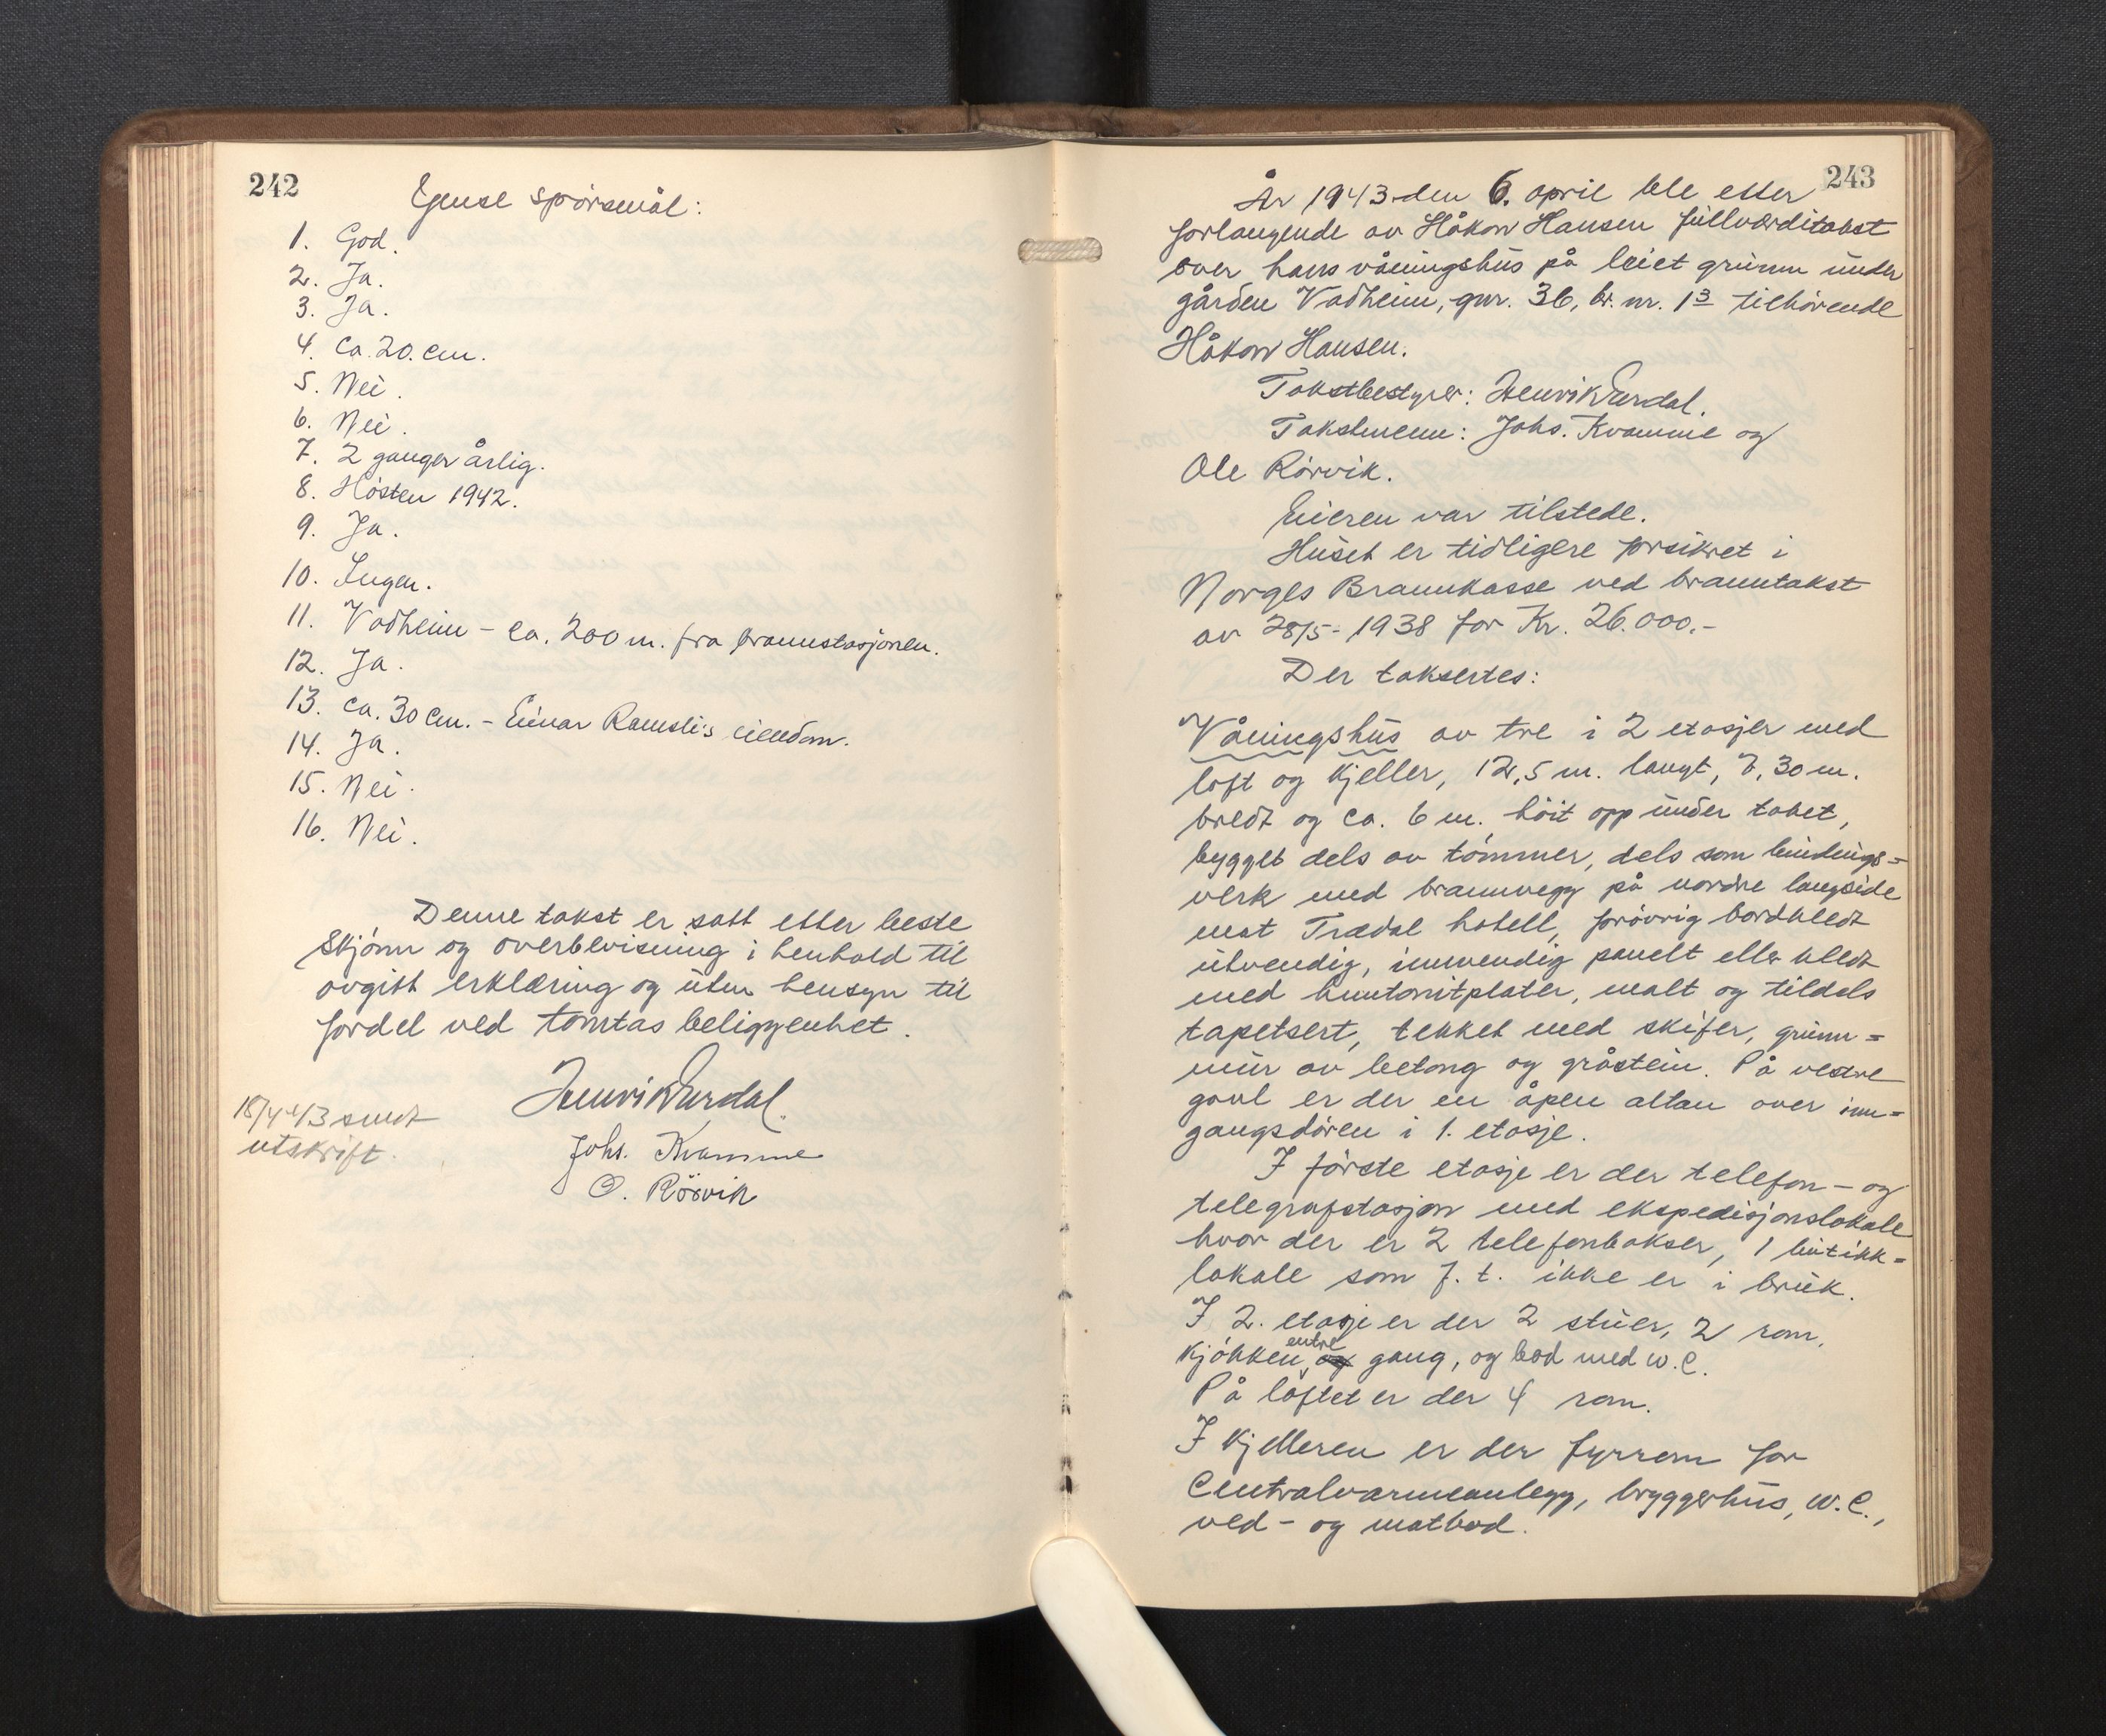 242
Egense spørsmål:
1. God.
2. Ja.
3. Ja.
4. Ca. 20. cm.
5. Nei.
6. Nei.
7. 2 ganger årlig.
8. Høsten 1942.
9. Ja.
10. Ingen.
11. Vadheim - ca. 200 m. fra brannstasjonen.
12. Ja.
13. Ca. 30 cm. - Einar Ramsli's eiendom.
14. Ja.
15. Nei.
16. Nei.
Denne takst er satt etter beste
skjønn og overbevisning i henhold til
avgitt erklæring og uten hensyn til
fordel ved tomtas beliggenhet.
Henrik Eurdal.
Johs. Kvamme
O. Rörvik
18/4 43 sendt
utskrift.
243
År 1943 den 6. april ble etter
forlangende av Håkon Hansen fullverditakst
over hans våningshus på leiet grunn under
gården Vadheim, gnr. 36, br. nr. 13 tilhørende
Håkon Hansen.
Takstbestyrer: Henrik Eurdal.
Takstmenn: Johs. Kvamme og
Ole Rörvik.
Eieren var tilstede.
Huset er tidligere forsikret i
Norges Brannkasse ved branntakst
av 28/5- 1938 for Kr. 26.000.-
Der taksertes:
Våningshus av tre i 2 etasjer med
loft og kjeller, 12,5 m. langt, 8,30 m.
bredt og ca. 6 m. høit opp under taket,
bygget dels av tømmer, dels som bindings=
verk med brannvegg på nordre langside
mot Trædal hotell, forøvrig bordkledt
utvendig, innvendig panelt eller kledt
med huntonitplater, malt og tildels
tapetsert, tekket med skifer, grunn=
mur av betong og gråstein. På vestre
gavl er der en åpen altan over inn=
gangsdøren i 1. etasje.
I første etasje er der telefon- og
telegrafstasjon med ekspedisjonslokale
hvor der er 2 telefonbokser, 1 butikk=
lokale som f. t. ikke er i bruk.
I 2. etasje er der 2 stuer, 2 rom,
kjøkken, entre gang, og bod med w.c.
På loftet er der 4 rom.
I kjelleren er der fyrrom for
Centralvarmeanlegg, bryggerhus, w.c.,
ved- og matbod.